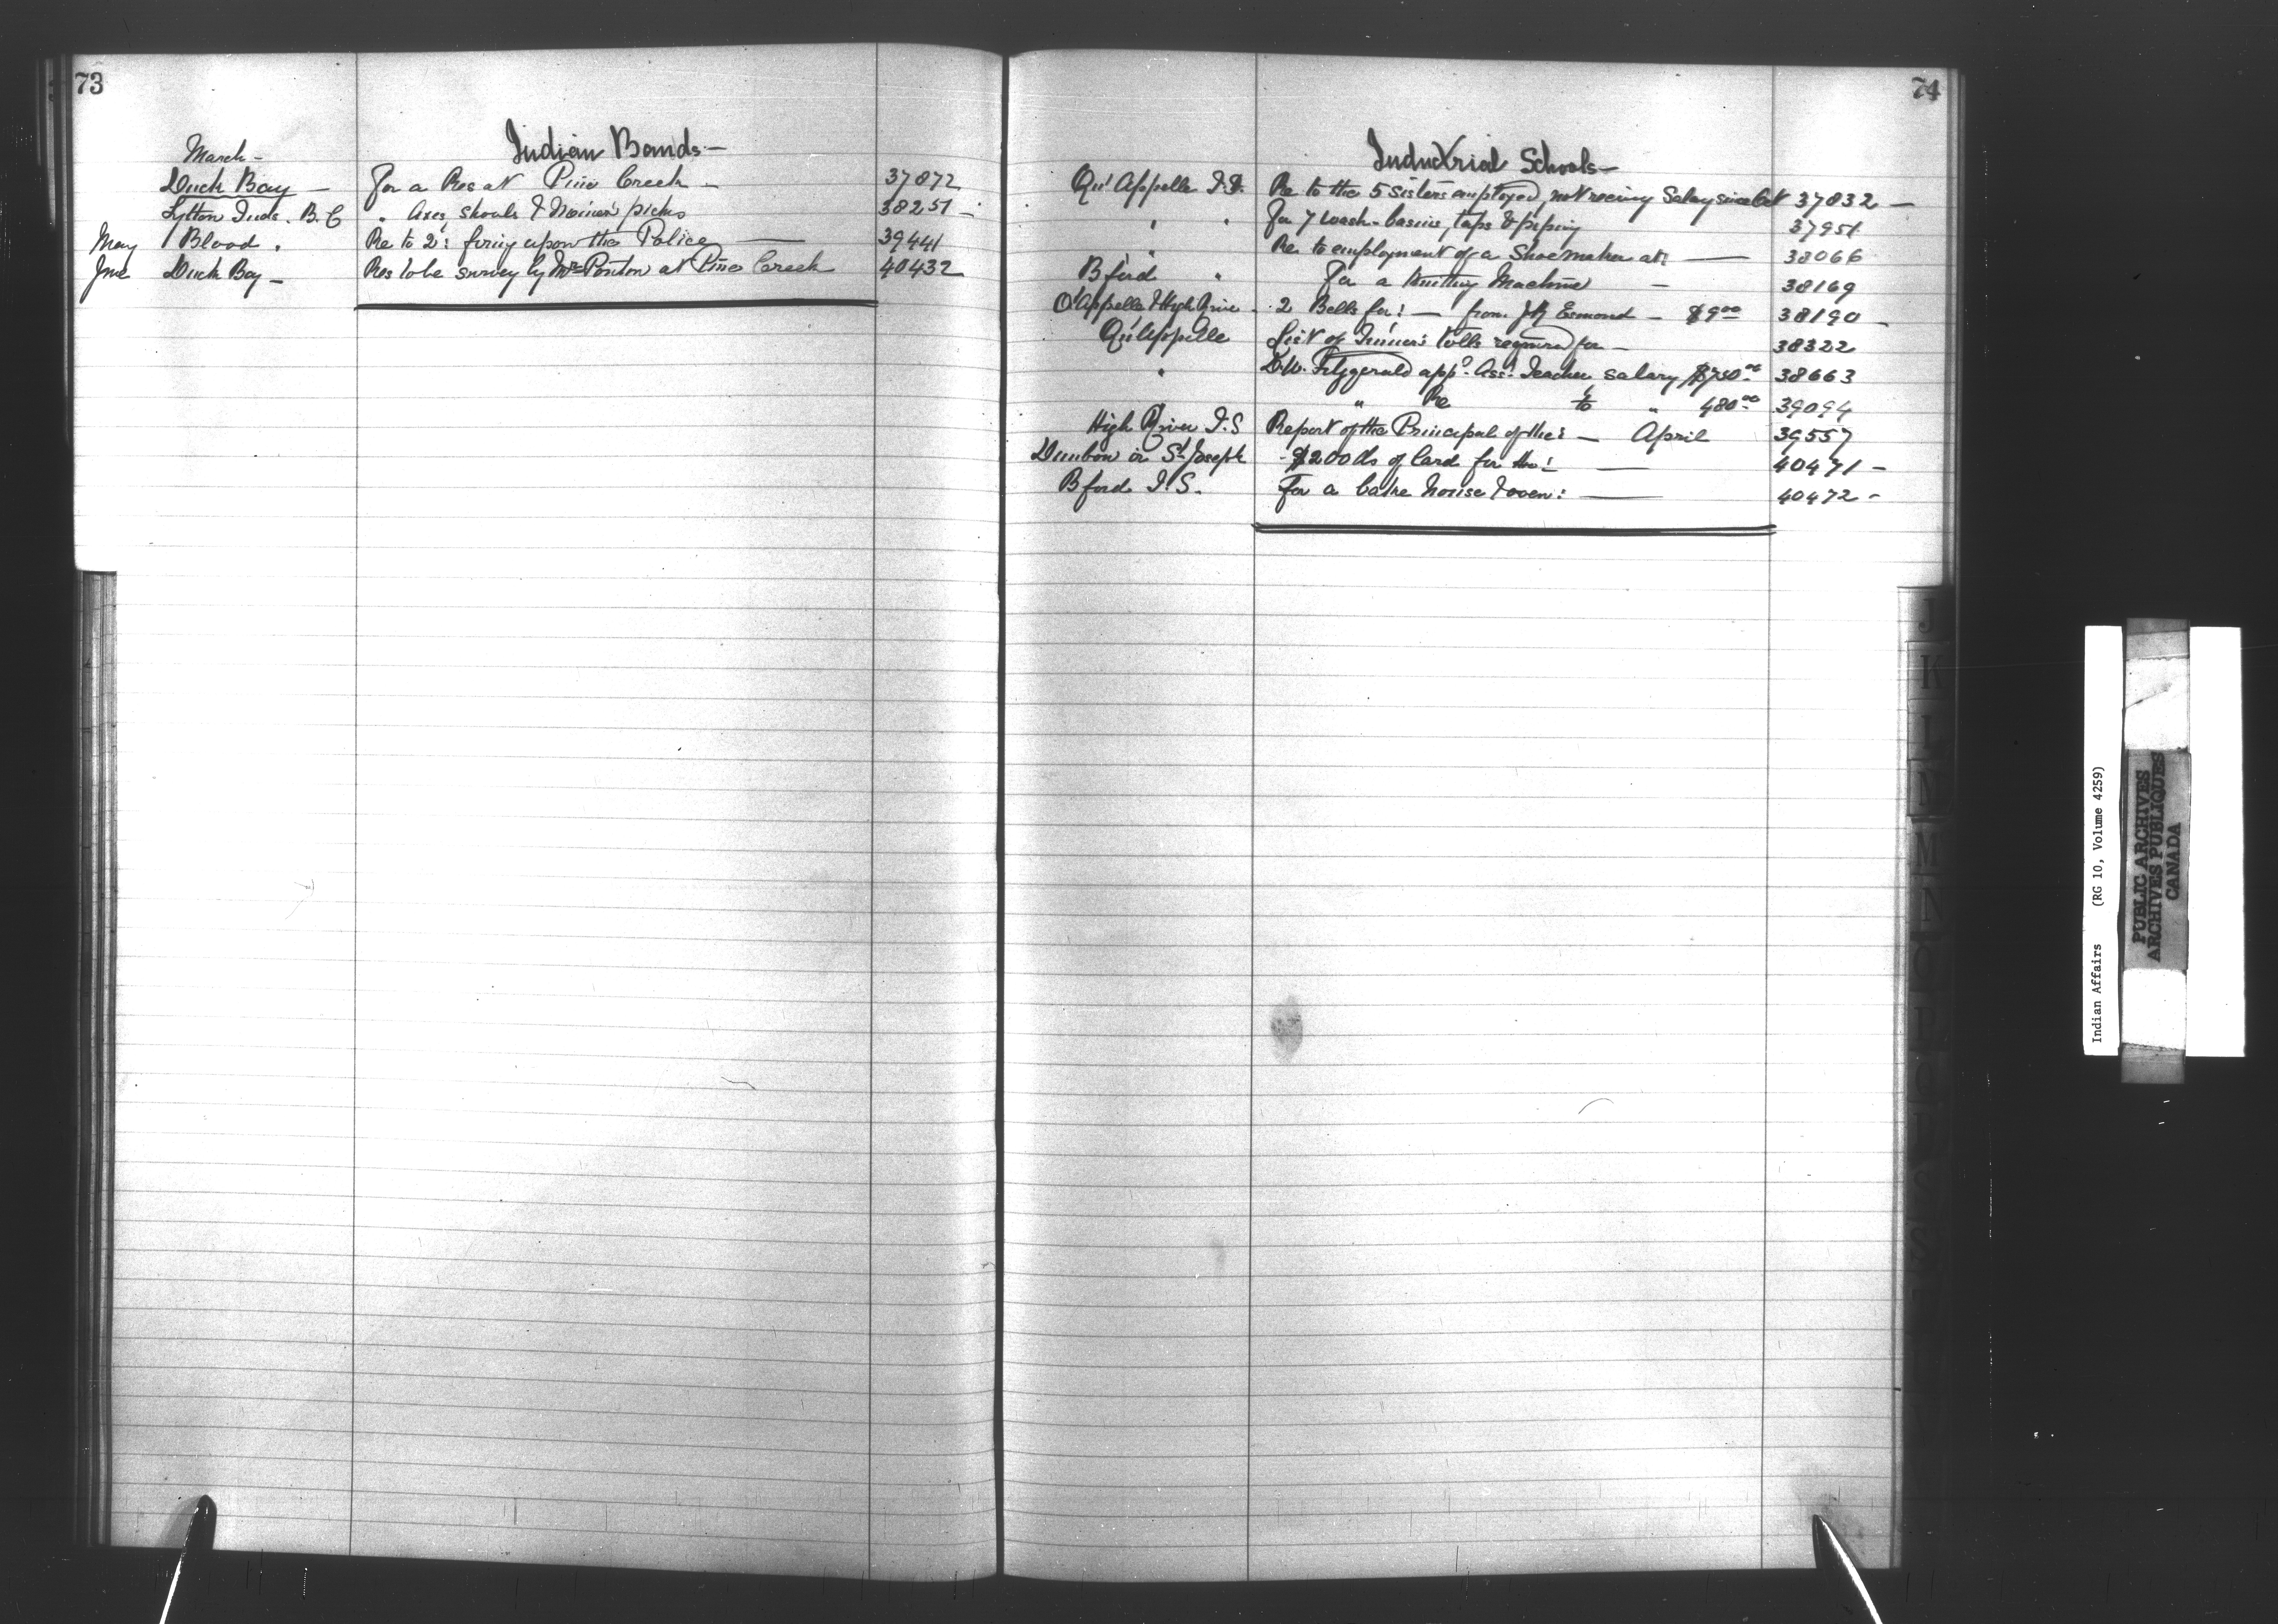 73
Indian Bands —
March —
Duck Bay — For a Res at Pine Creek — 37872
Lytton Inds. B.C " Axes, shovels & Miners' picks 38251 —
May Blood " Re to 2: firing upon the Police — 39441
June Duck Bay — Res to be survey by Mr Ponton at Pine Creek 40432
74
Industrial Schools —
Qu'Appelle I.S. Re to the 5 Sisters employed, not receivg Salary since Oct 37832 —
" " For 7 wash-basins, taps & piping 37951
" Re to employment of a Shoemaker at: — 38066
Bford " For a Knitting Machine — 38169
Q'Appelle & High River - 2 Bells for: — from J R Esmond — $9.00 38190 —
Qu'Appelle List of Tinner's tools required for — 38322
" D.W. Fitzgerald app.d Ass.t Teacher salary 38663
" Re to " 480.00 39094
High River I.S Report of the Principal of the: — April 39557
Dunbow or St Joseph 200 lbs of lard for the: — 40471 —
Bford I.S. For a bake house & oven: — 40472 -
J
K
L
M
N
Indian Affairs (RG 10, Volume 4259)
PUBLIC ARCHIVES
ARCHIVES PUBLIQUES
CANADA